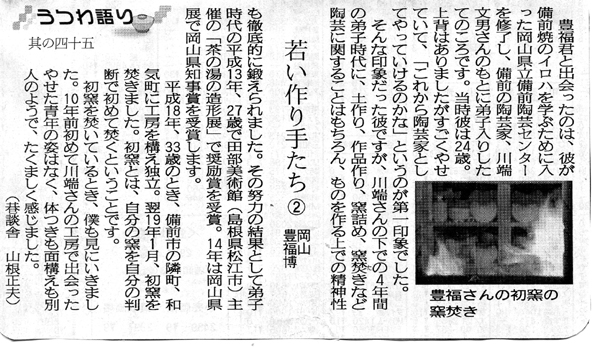 うつわ語り
其の四十五
若い作り手たち②
岡山
豊福博
豊福君と出会ったのは、彼が
備前焼のイロハを学ぶために入
った岡山県立備前陶芸センター
を修了し、備前の陶芸家、川端
文男さんのもとに弟子入りした
てのころです。当時彼は24歳。
上背はありましたがすごくやせ
ていて、「これから陶芸家とし
てやっていけるのかな」というのが第一印象でした。
そんな印象だった彼ですが、川端さんの下での4年間
の弟子時代に、土作り、作品作り、窯詰め、窯焚きなど
陶芸に関することはもちろん、ものを作る上での精神性
も徹底的に鍛えられました。その努力の結果として弟子
時代の平成13年、27歳で田部美術館（島根県松江市）主
催の「茶の湯の造形展」で奨励賞を受賞。14年は岡山県
展で岡山県知事賞を受賞します。
平成18年、33歳のとき、備前市の隣町、和
気町に工房を構え独立。翌19年1月、初窯を
焚きました。初窯とは、自分の窯を自分の判
断で初めて焚くということです。
初窯を焚いているとき、僕も見にいきまし
た。10年前初めて川端さんの工房で出会った
やせた青年の姿はなく、体つきも面構えも別
人のようで、たくましく感じました。
山根正夫）
豊福さんの初窯の
窯焚き